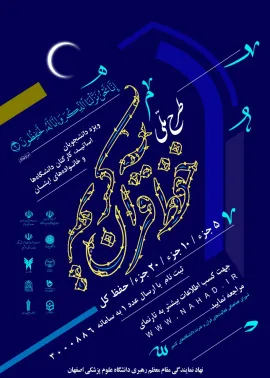 إِنَّا نَحْنُ نَزَّلْنَا الذِّكْرَ وَإِنَّا لَهُ لَحَافِظُونَ
طرح ملی
ویژه دانشجویان
اساتید، کارکنان دانشگاه‌ها
و خانواده‌های ایشان
۵ جزء / ۱۰ جزء / ۲۰ جزء / حفظ کل
ثبت نام با ارسال عدد ۲ به سامانه ۳۰۰۰۸۸۶
جهت کسب اطلاعات بیشتر به تارنمای
WWW.NAHAD.IR
مراجعه نمایید
نهاد نمایندگی مقام معظم رهبری دانشگاه علوم پزشکی اصفهان